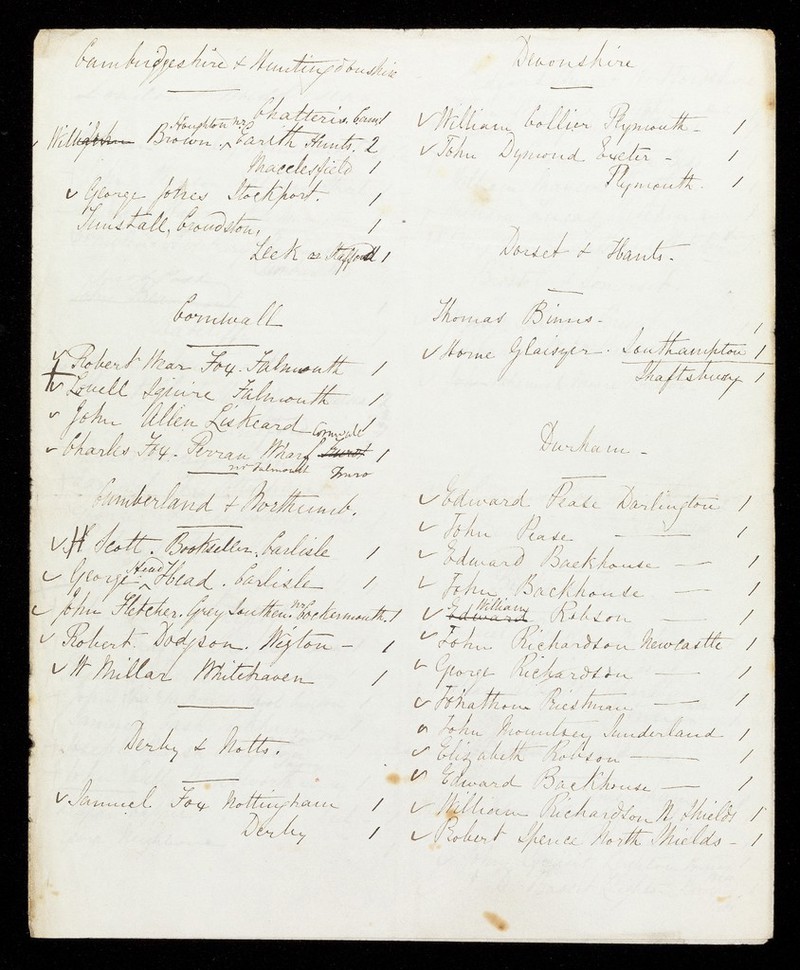 Cambridgeshire & Huntingdonshire
Chatteris. Cam. 1
✓ William Brown. Houghton nr Earith Hunts. 2
Macclesfield 1
✓ George Jones Stockport. 1
Tunstall, 1
Leek Stafford 1
Cornwall
✓ Robert Were Fox. Falmouth 1
✓ Lovell Squire Falmouth 1
✓ John Allen Liskeard Cornwall 1
✓ Charles Fox. Perran Wharf Truro 1
nr Falmouth
Cumberland & Northumb.
✓ H Scott. Bookseller. Carlisle 1
✓ George Head Head. Carlisle 1
✓ John Fletcher. Grey Southen. nr Cockermouth. 1
✓ Robert Dodgson. Wigton - 1
✓ W Millar Whitehaven 1
Derby & Notts.
✓ Samuel Fox Nottingham 1
Derby 1
Devonshire
✓ William Collier Plymouth - 1
✓ John Dymond Exeter - 1
Plymouth. 1
Dorset & Hants.
Thomas Binns - 1
✓ Home Glaisyer. Southampton 1
Shaftsbury 1
Durham -
✓ Edward Pease Darlington 1
✓ John Pease — 1
✓ Edward Backhouse — 1
✓ John Backhouse — 1
✓ Edward William Robson — 1
✓ John Richardson Newcastle 1
✓ George Richardson — 1
✓ Jonathan Priestman — 1
✓ John Mounsey Sunderland 1
✓ Elizabeth Robson — 1
✓ Edward Backhouse — 1
✓ William Richardson N. Shields 1
✓ Robert Spence North Shields - 1